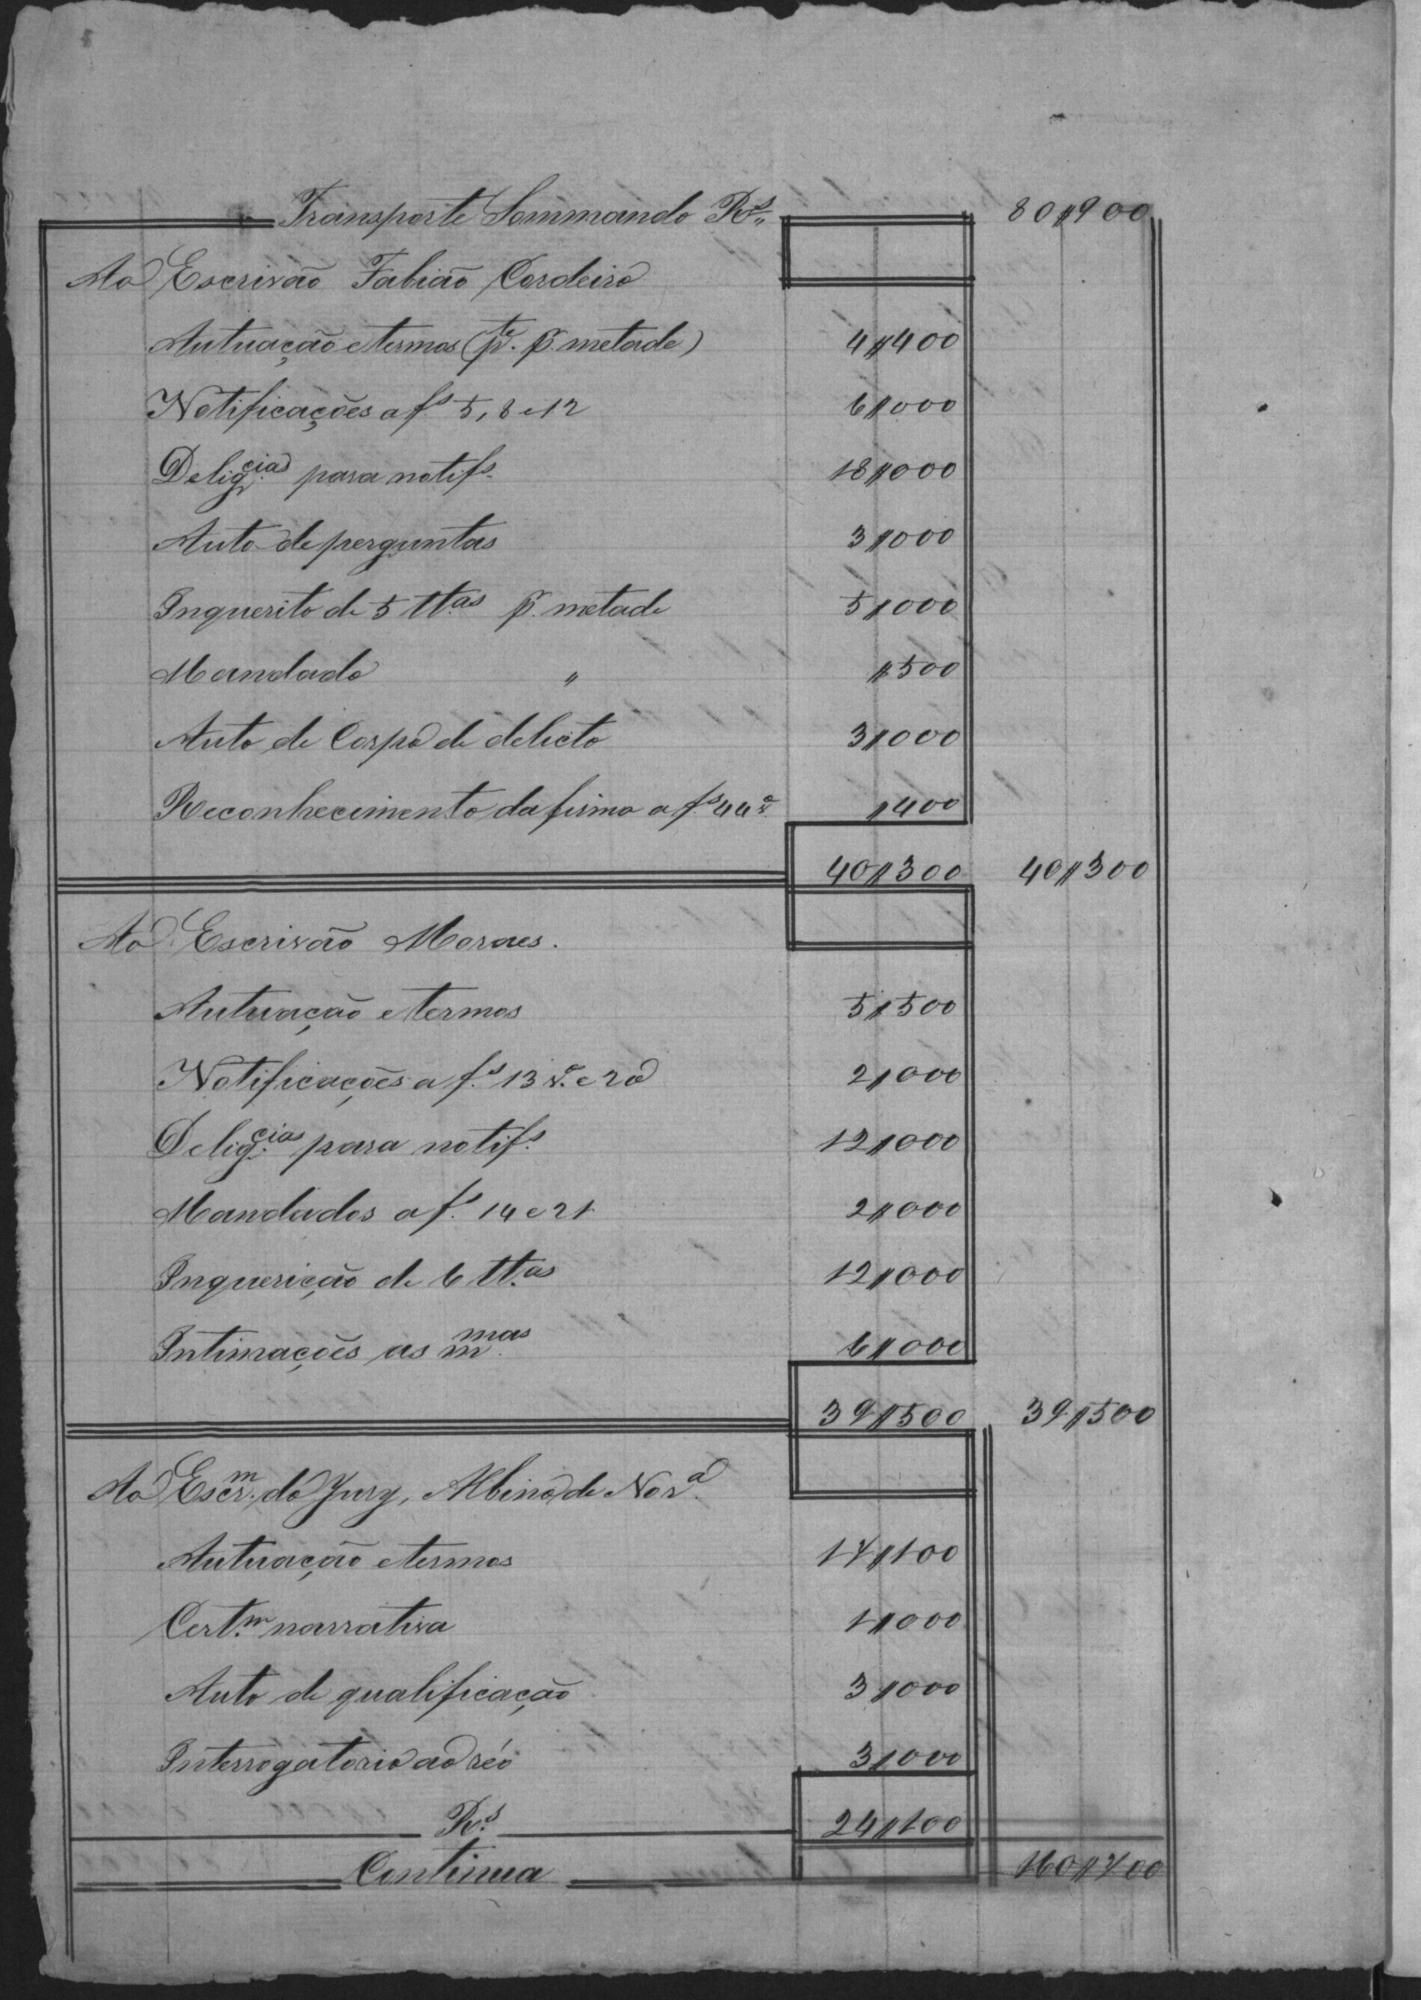 Transporte Sommando Rs 80$900
Ao Escrivão Fabião Cordeiro
Autuação e termos (pte. p. metade) 4$400
Notificações a fs 5, 8 e 12 6$000
Deligcias para notifs. 18$000
Auto de perguntas 3$000
Inquerito de 5 ttas p. metade 5$000
Mandado " $500
Auto de Corpo de delicto 3$000
Reconhecimento da firma a fs 44 v $400
40$300 40$300
Ao Escrivão Moraes.
Autuação e termos 5$500
Notificações a fs. 13 v. e 20 2$000
Deligcias para notifs. 12$000
Mandados a fs. 14 e 21 2$000
Inquerição de 6 ttas 12$000
Intimações as mmas 6$000
39$500 39$500
Ao Escrm. do Jury, Albino de Nora.
Autuação e termos 17$100
Certm. narrativa 1$000
Auto de qualificação 3$000
Interrogatorio ao réo 3$000
Rs. 24$100
Continua 160$700